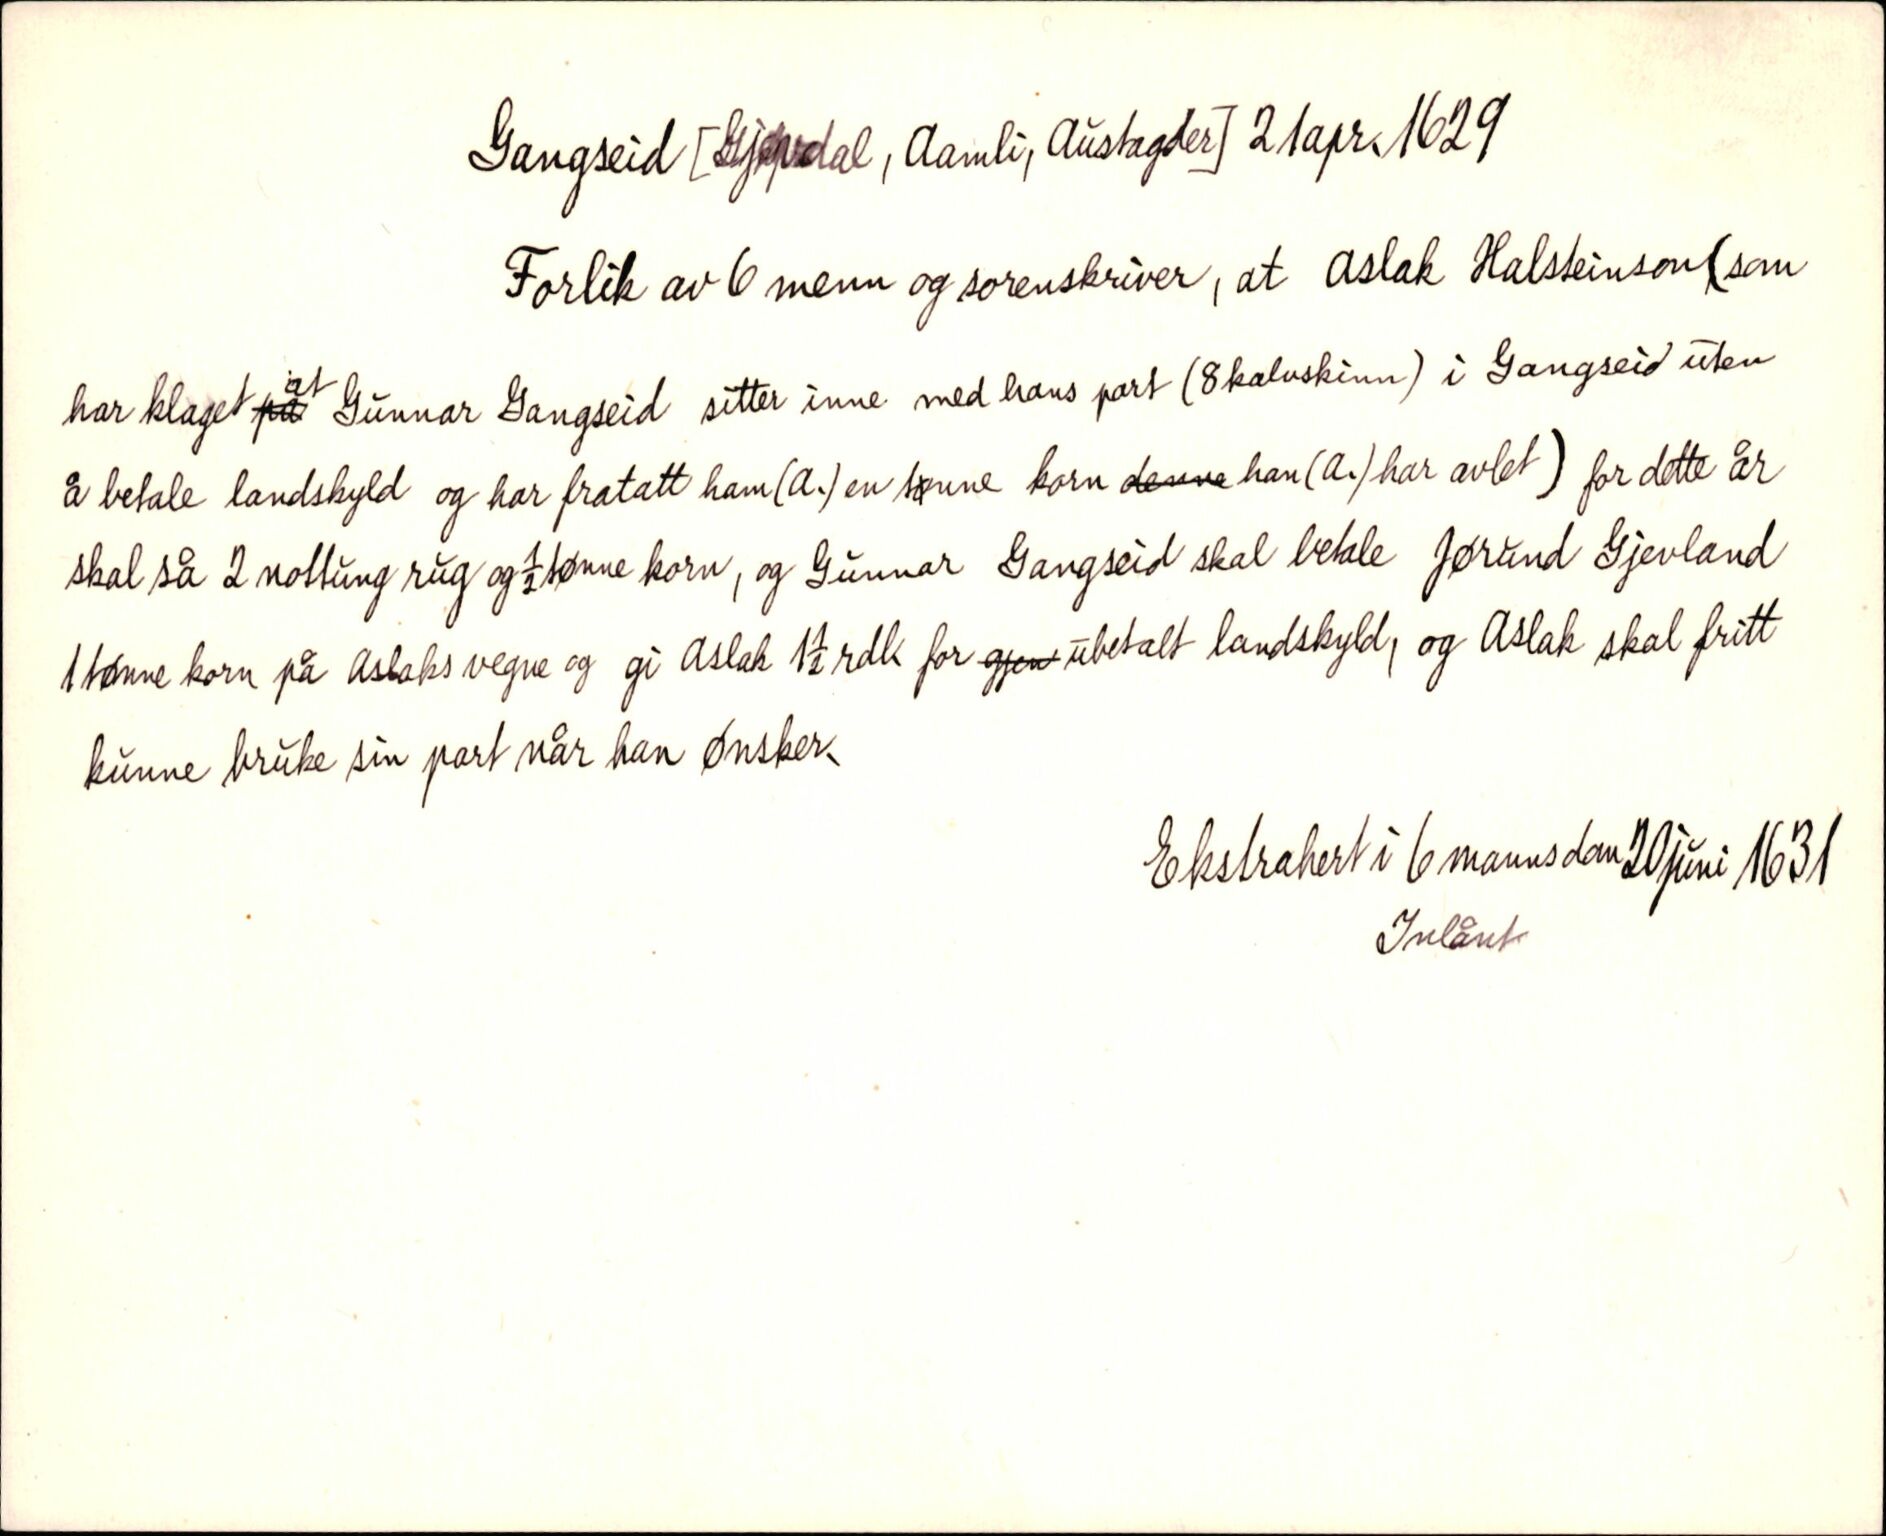 Gangseid [Gjøvdal, Aamli, Austagder] 21 apr. 1629
Forlik av 6 menn og sorenskriver, at Aslak Halsteinson (som
har klaget på at Gunnar Gangseid sitter inne med hans part (8 kalvskinn) i Gangseid uten
å betale landskyld og har fratatt ham (A.) en tønne korn denne han (A.) har avlet) for dette år
skal så 2 nottung rug og ½ tønne korn, og Gunnar Gangseid skal betale Jørund Gjevland
1 tønne korn på Aslaks vegne og gi Aslak 1½ rdl. for gjen ubetalt landskyld, og Aslak skal fritt
kunne bruke sin part når han ønsker.
Ekstrahert i 6 manns dom 20 juni 1631
Inlånt